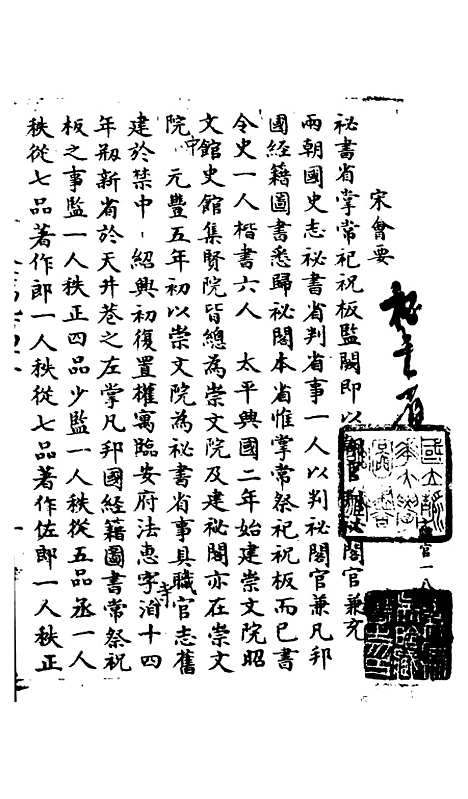 宋會要
祕書省
職官一八
祕書省掌常祀祝板監闕即以 官 祕閣官兼充
兩朝國史志祕書省判省事一人以判祕閣官兼凡邦
國經籍圖書悉歸祕閣本省惟掌常祭祀祝板而已書
令史一人楷書六人 太平興國二年始建崇文院昭
文館史館集賢院皆總為崇文院及建祕閣亦在崇文
院中 元豐五年初以崇文院為祕書省事具職官志舊
建於禁中紹興初復置權寓臨安府法惠寺洎十四
年剏新省於天井巷之左掌凡邦國經籍圖書常祭祝
板之事監一人秩正四品少監一人秩從五品丞一人
秩從七品著作郎一人秩從七品著作佐郎一人秩正